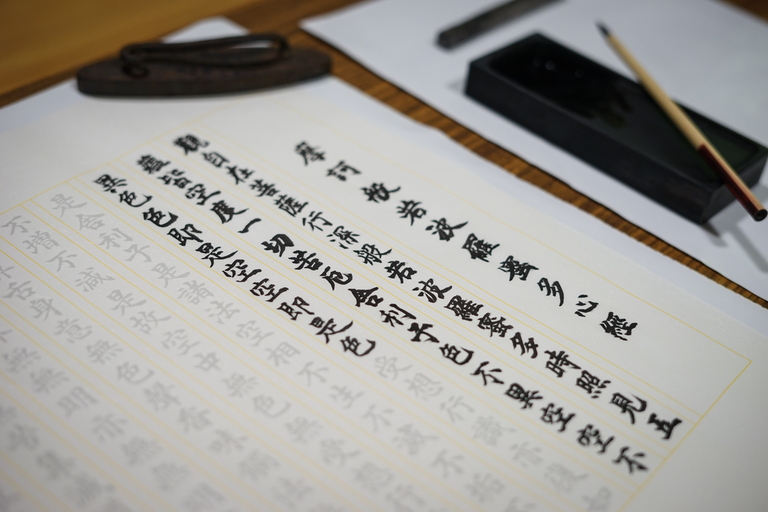 摩訶般若波羅蜜多心經
觀自在菩薩行深般若波羅蜜多時照見五
蘊皆空度一切苦厄舍利子色不異空空不
異色色即是空空即是色受想行識亦復如
是舍利子是諸法空相不生不滅不垢
不增不減是故空中無色無受想行
舌身意無色聲香味
無無明亦無無明